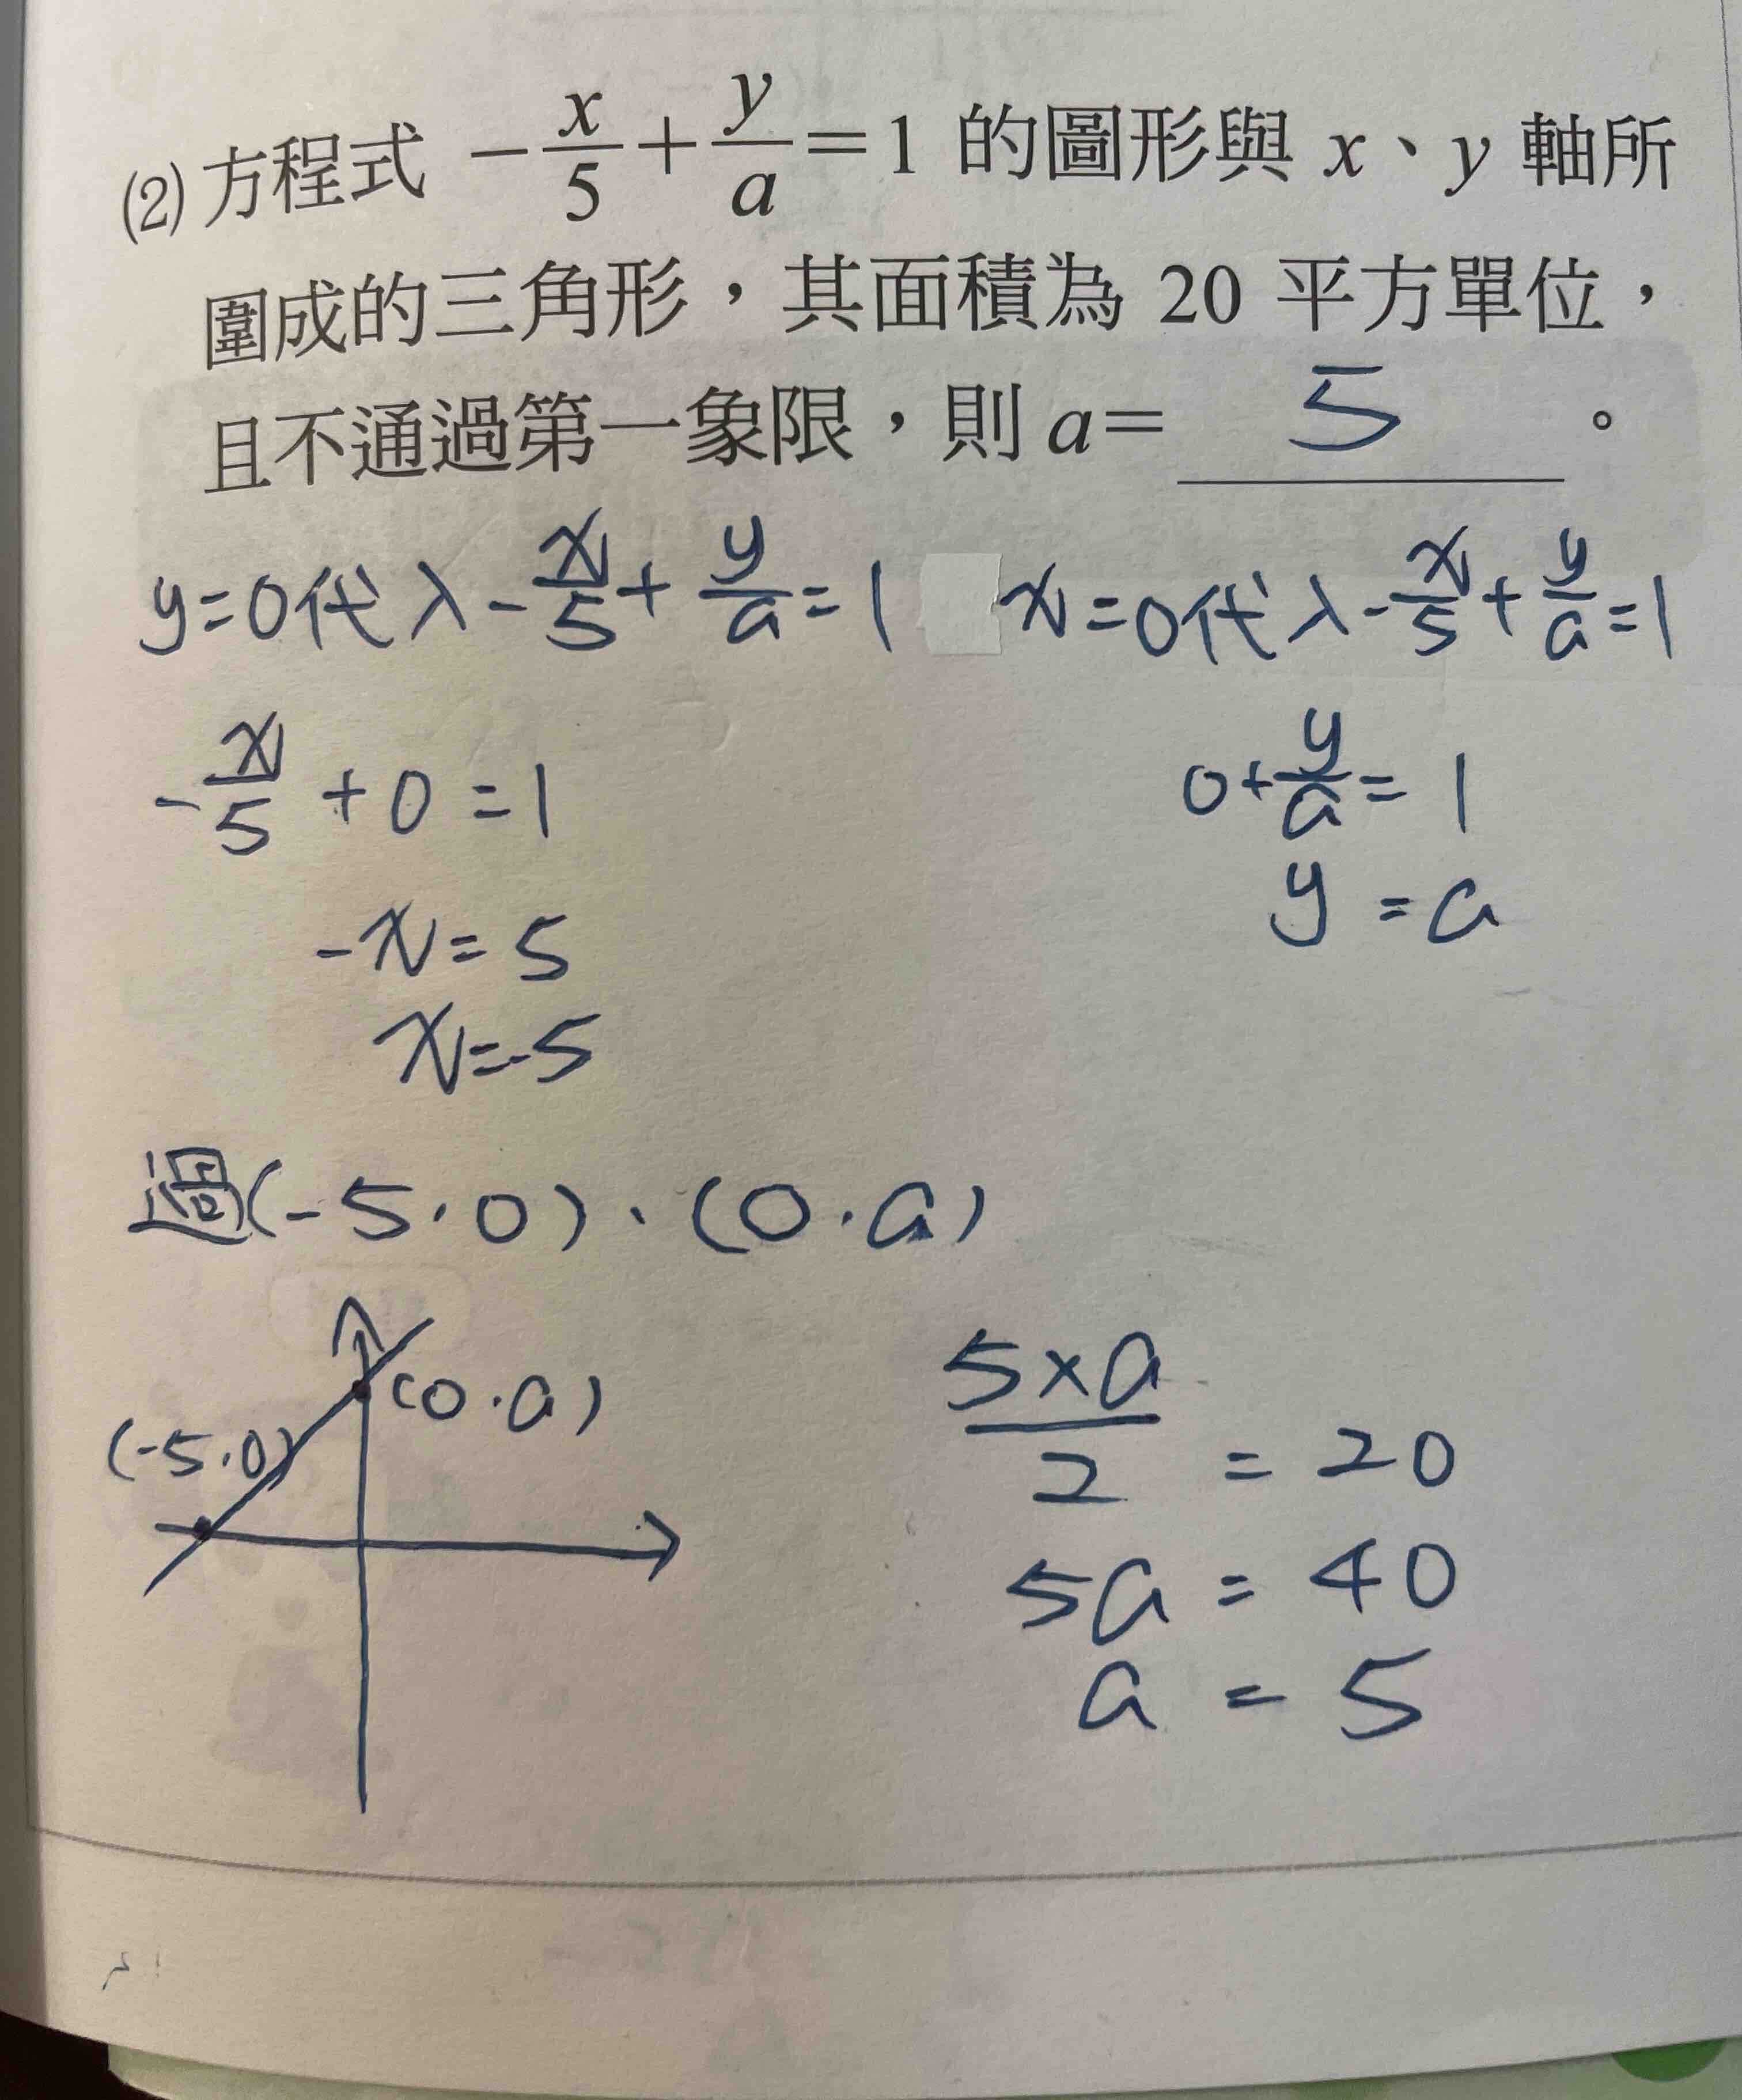 (2) 方程式 -x/5 + y/a = 1 的圖形與 x、y 軸所
圍成的三角形，其面積為 20 平方單位，
且不通過第一象限，則 a = 5 。
y=0代入 -x/5 + y/a = 1
-x/5 + 0 = 1
-x = 5
x = -5
x=0代入 -x/5 + y/a = 1
0 + y/a = 1
y = a
過(-5,0)、(0,a)
(0,a)
(-5,0)
5×a/2 = 20
5a = 40
a = 5